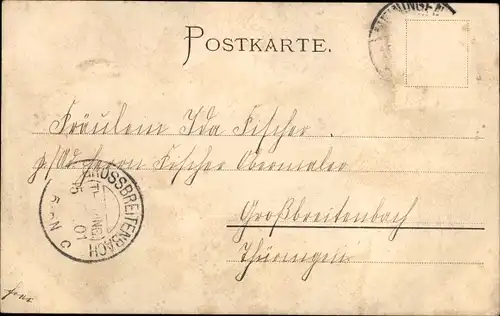 MEININGEN
POSTKARTE.
Fräulein Ida Fischer
p/Ad Herrn Fischer Obermaler
Großbreitenbach
Thüringen
GROSSBREITENBACH
01
5-6N
frei